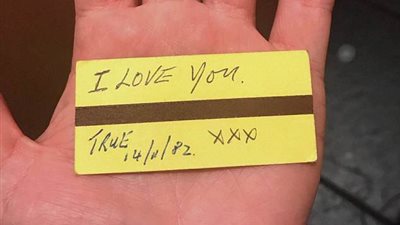 I LOVE YOU.
TRUE 14/11/82. XXX